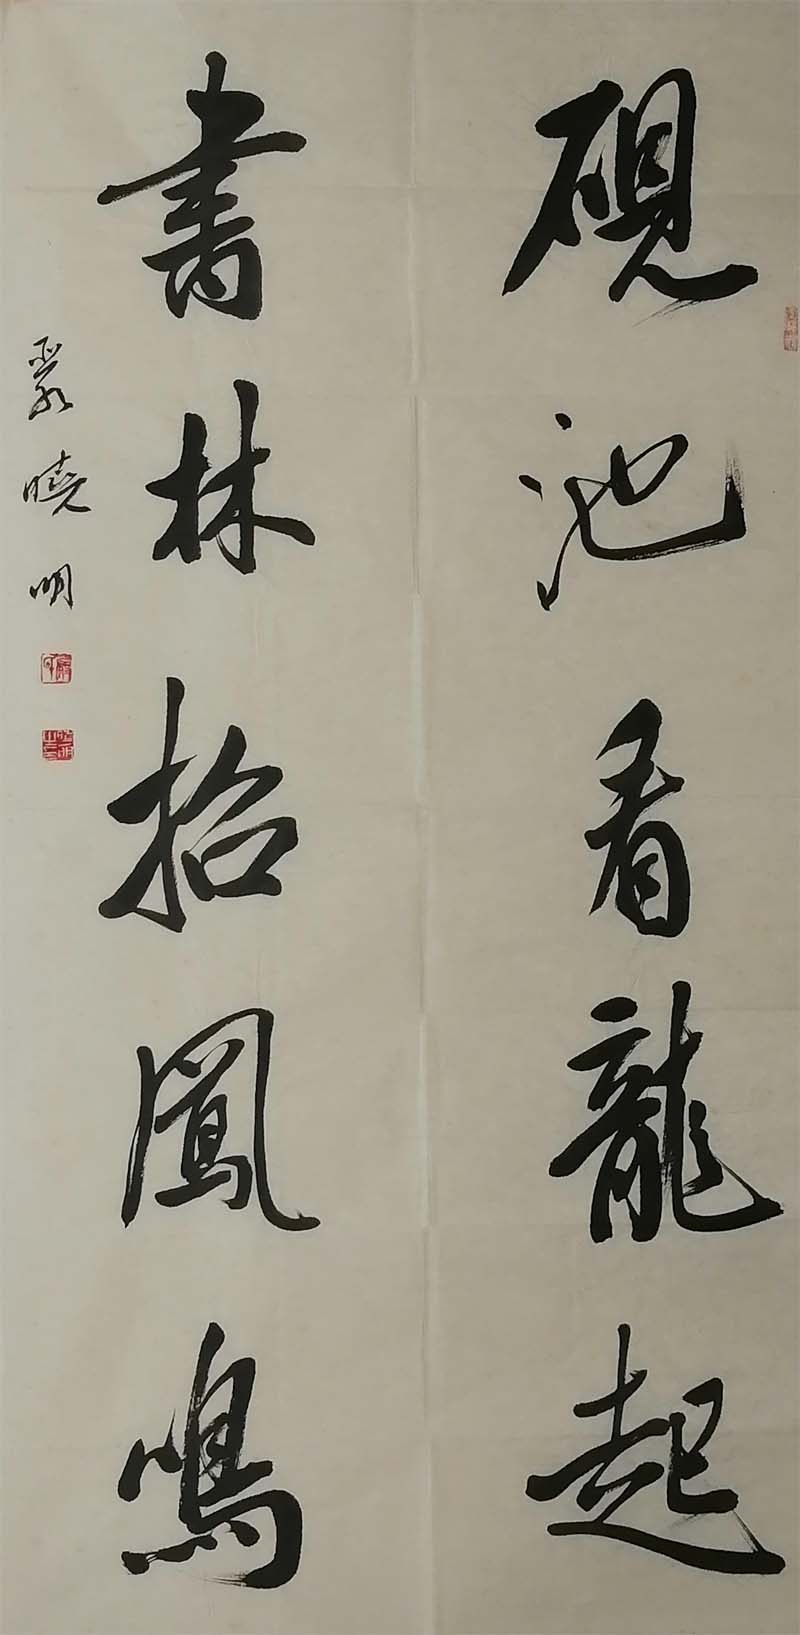 硯池看龍起
書林招鳳鳴
嚴曉明